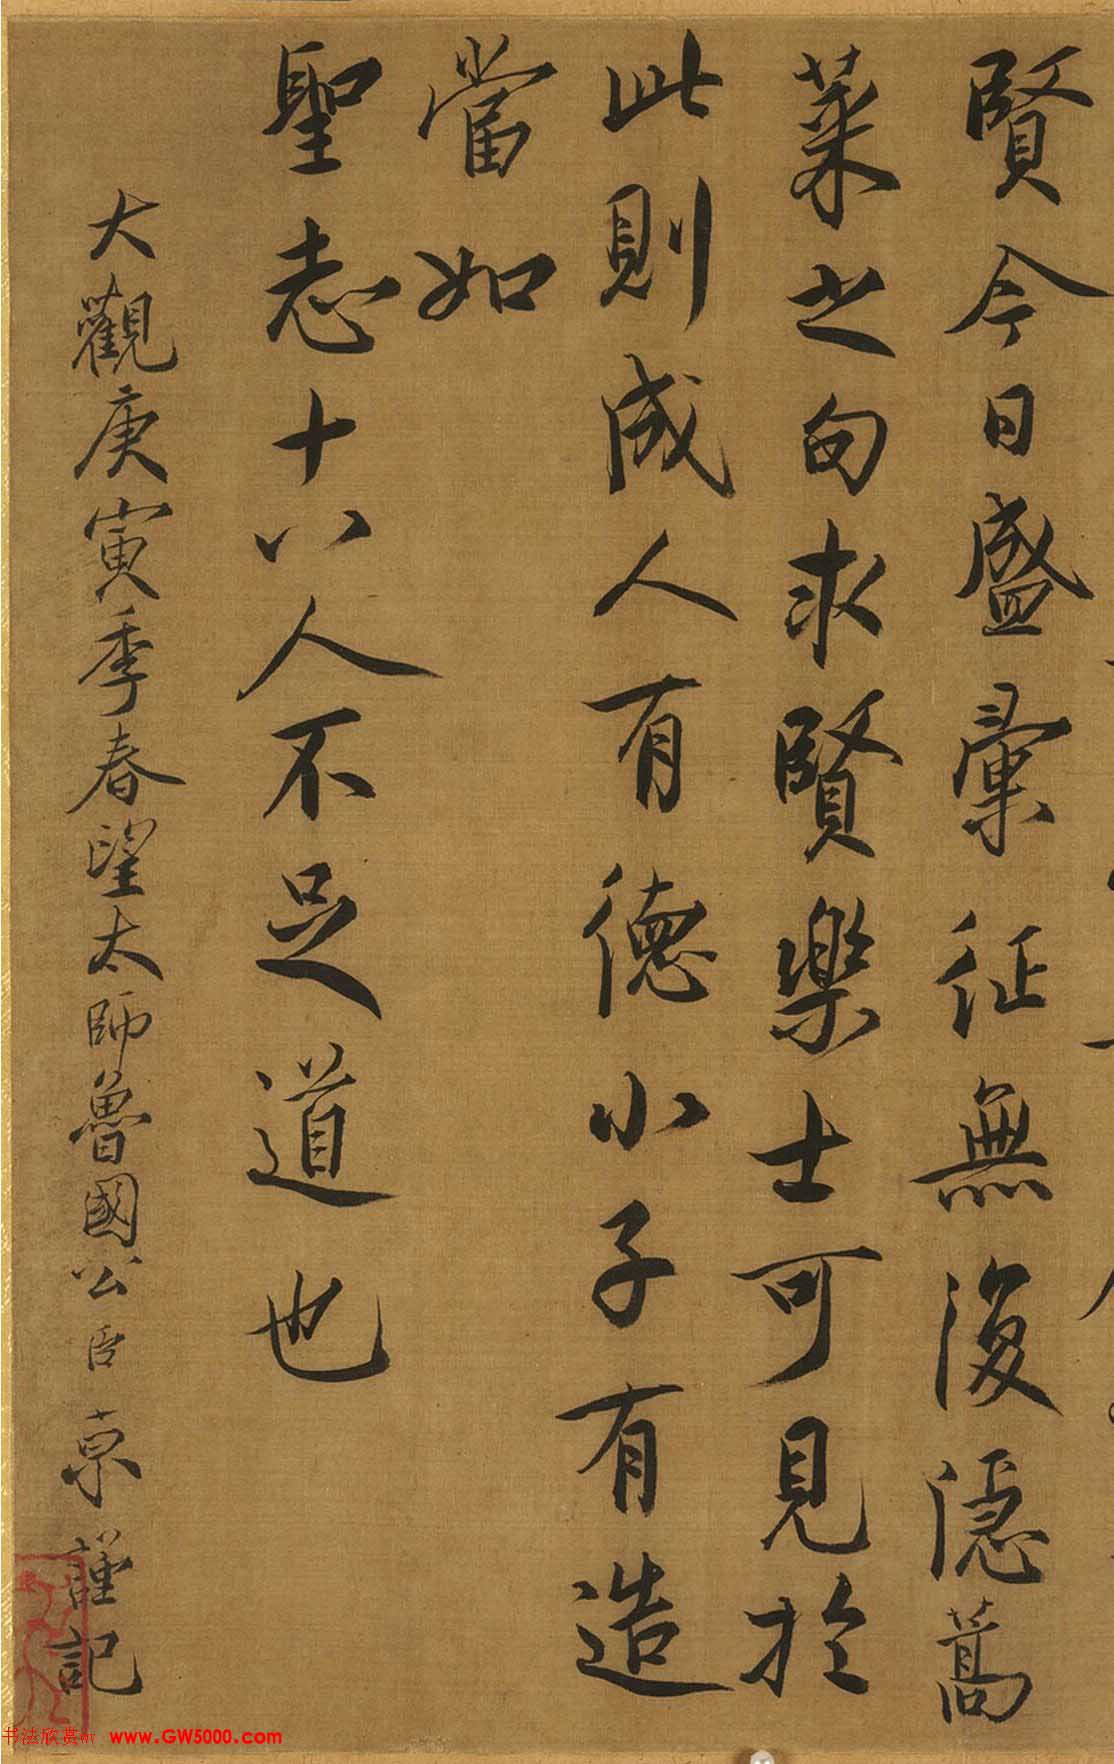 賢今日盛彙征無復隱蒿
萊之句求賢樂士可見於
此則成人有德小子有造
當如
聖志十八人不足道也
大觀庚寅季春望太師魯國公臣京謹記
书法欣赏 www.GW5000.com